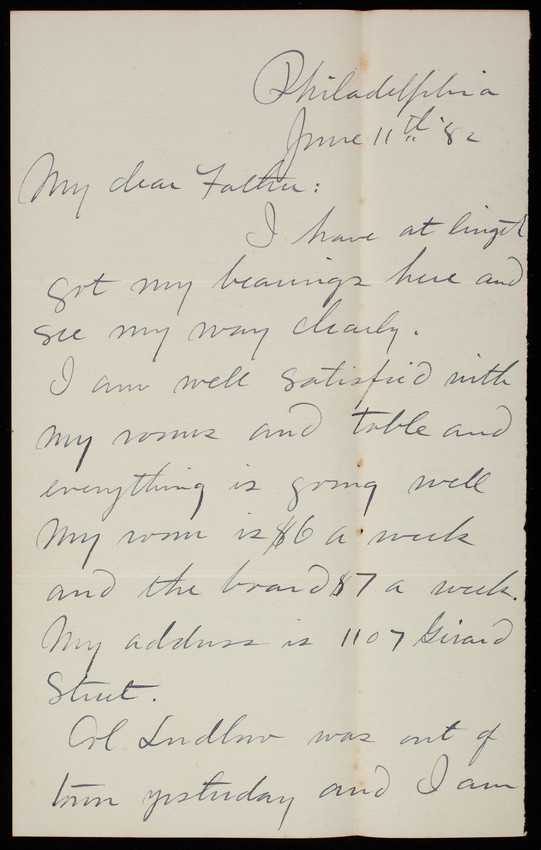 Philadelphia
June 11th '82
My dear Father:
I have at lingth
got my bearings here and
see my way clearly.
I am well satisfied with
my rooms and table and
everything is going well
My room is $6 a week
and the board $7 a week.
My address is 1107 Girard
Street.
Col Ludlow was out of
town yesterday and I am